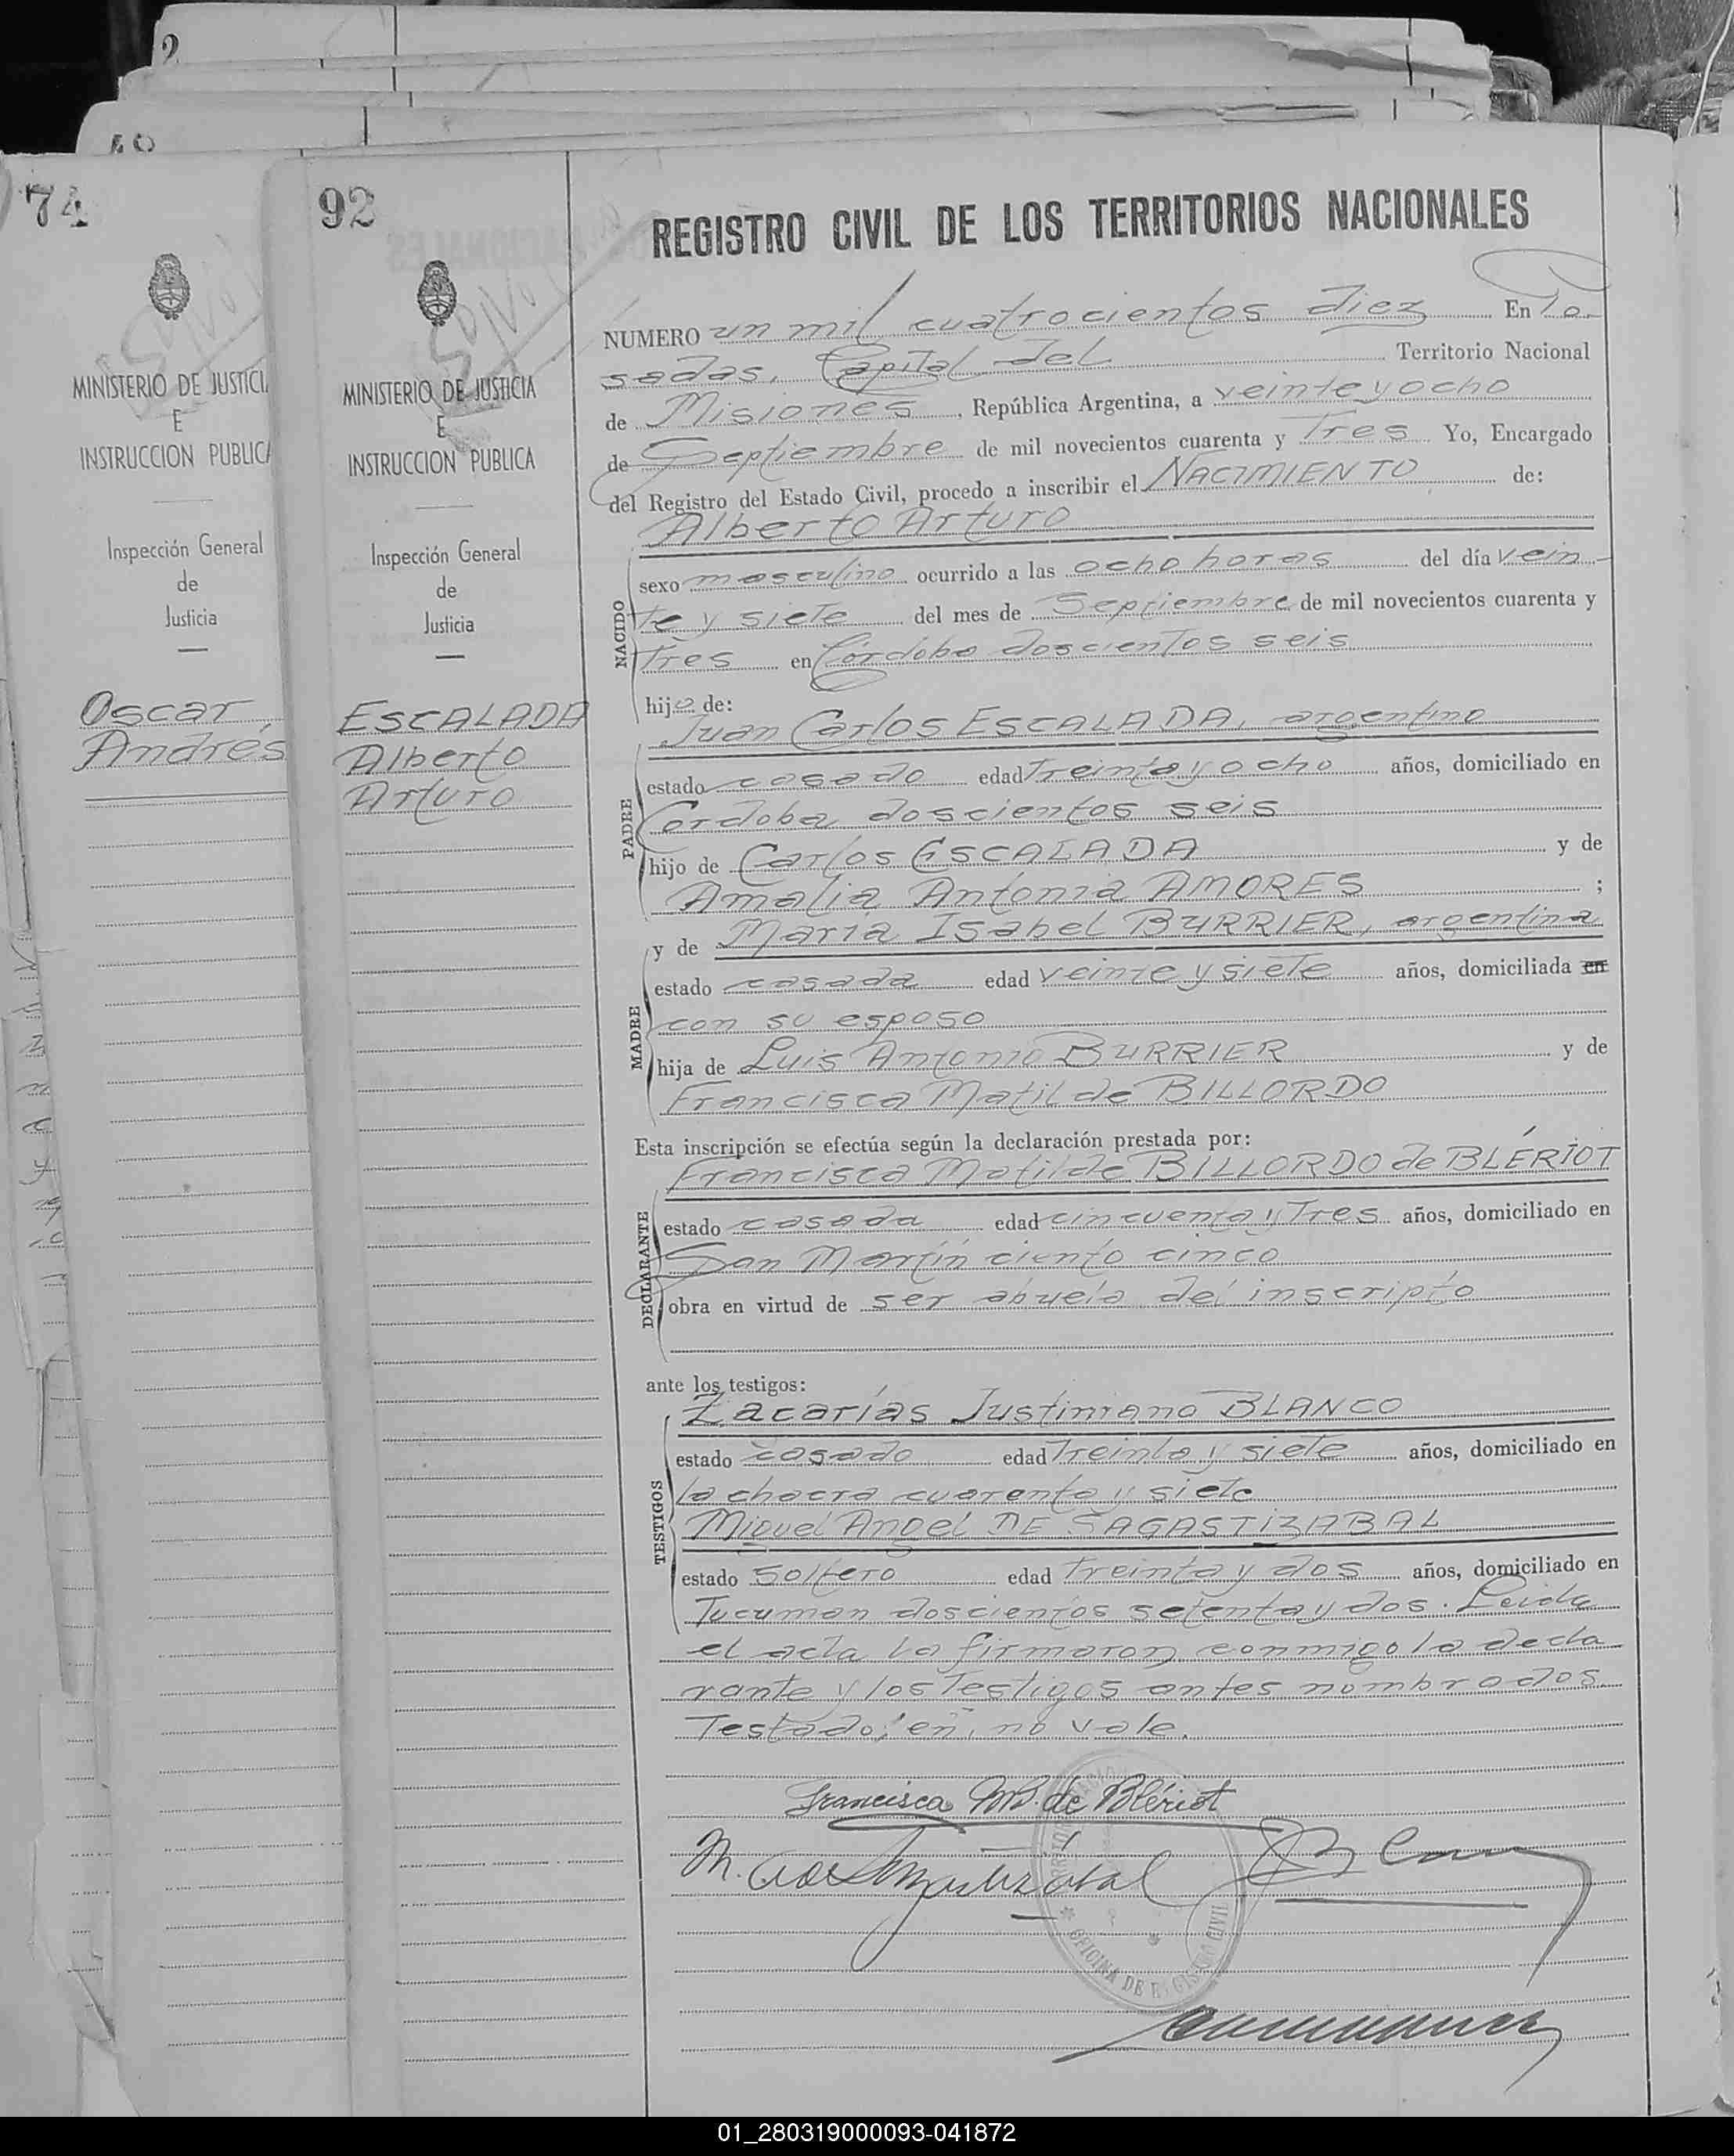 2
48
74
MINISTERIO DE JUSTICI
E
INSTRUCCION PUBLICA
Inspección General
de
Justicia
Oscar
Andrés
92
MINISTERIO DE JUSTICIA
E
INSTRUCCION PUBLICA
Inspección General
de
Justicia
ESCALADA
Alberto
Arturo
REGISTRO CIVIL DE LOS TERRITORIOS NACIONALES
NUMERO un mil cuatrocientos diez En Po-
sadas, Capital del Territorio Nacional
de Misiones, República Argentina, a veinte y ocho
de Septiembre de mil novecientos cuarenta y Tres Yo, Encargado
del Registro del Estado Civil, procedo a inscribir el NACIMIENTO de:
Alberto Arturo
NACIDO
sexo masculino ocurrido a las ocho horas del día vein-
te y siete del mes de Septiembre de mil novecientos cuarenta y
Tres en Córdoba doscientos seis
hijo de:
Juan Carlos ESCALADA, argentino
PADRE
estado casado edad Treinta y ocho años, domiciliado en
Cordoba doscientos seis
hijo de Carlos ESCALADA y de
Amalia Antonia AMORES ;
y de María Isabel BURRIER, argentina
MADRE
estado casada edad veinte y siete años, domiciliada en
con su esposo
hija de Luis Antonio BURRIER y de
Francisca Matilde BILLORDO
Esta inscripción se efectúa según la declaración prestada por:
Francisca Matilde BILLORDO de BLÉRIOT
DECLARANTE
estado casada edad cincuenta y Tres años, domiciliado en
San Martín ciento cinco
obra en virtud de ser abuela del inscripto
ante los testigos:
Zacarías Justiniano BLANCO
TESTIGOS
estado casado edad Treinta y siete años, domiciliado en
la chacra cuarenta y siete
Miguel Angel DE SAGASTIZABAL
estado soltero edad Treinta y dos años, domiciliado en
Tucuman doscientos setenta y dos. Leida
el acta la firmaron conmigo la decla
rante y los Testigos antes nombrados.
Testado: en, no vale.
Francisca M B. de Blériot
OFICINA DE REGISTRO CIVIL
01_280319000093-041872